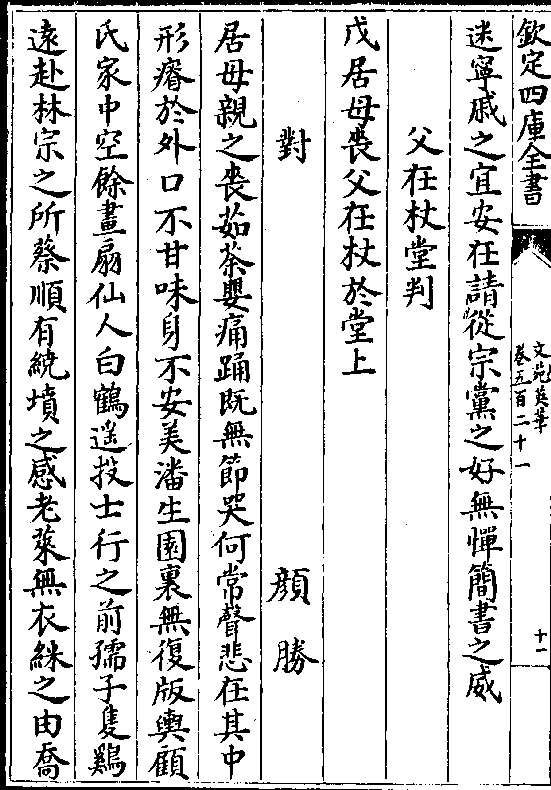 欽定四庫全書
文苑英華
卷五百二十一
十一
迷寧戚之宜安在請從宗黨之好無憚簡書之威
父在杖堂判
戊居母喪父在杖於堂上
對
顔勝
居母親之喪茹荼嬰痛踊既無節哭何常聲悲在其中
形瘠於外口不甘味身不安美潘生園裏無復版輿顧
氏家中空餘畫扇仙人白鶴遥投士行之前孺子隻鷄
遠赴林宗之所蔡順有繞墳之感老萊無衣綵之由喬